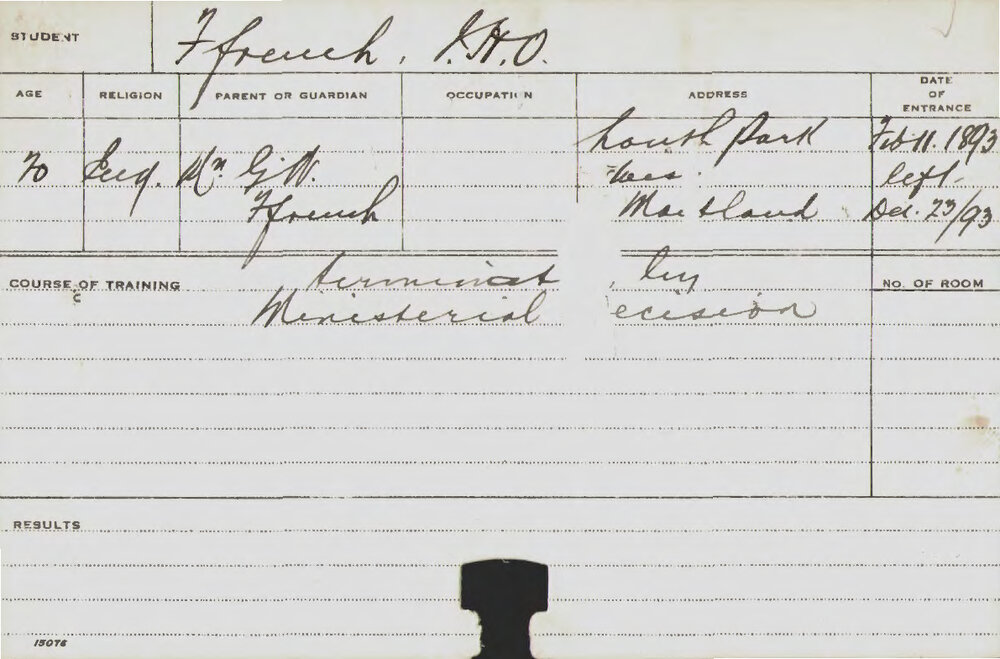 STUDENT Ffrench, J.H.O.
AGE RELIGION PARENT OR GUARDIAN OCCUPATION ADDRESS DATE OF ENTRANCE
South Park Feb 11. 1893
20 Eng. Mr G.W. Wes left
Ffrench Maitland Dec. 23/93
COURSE OF TRAINING terminat by NO. OF ROOM
Ministerial ecision
RESULTS
15076